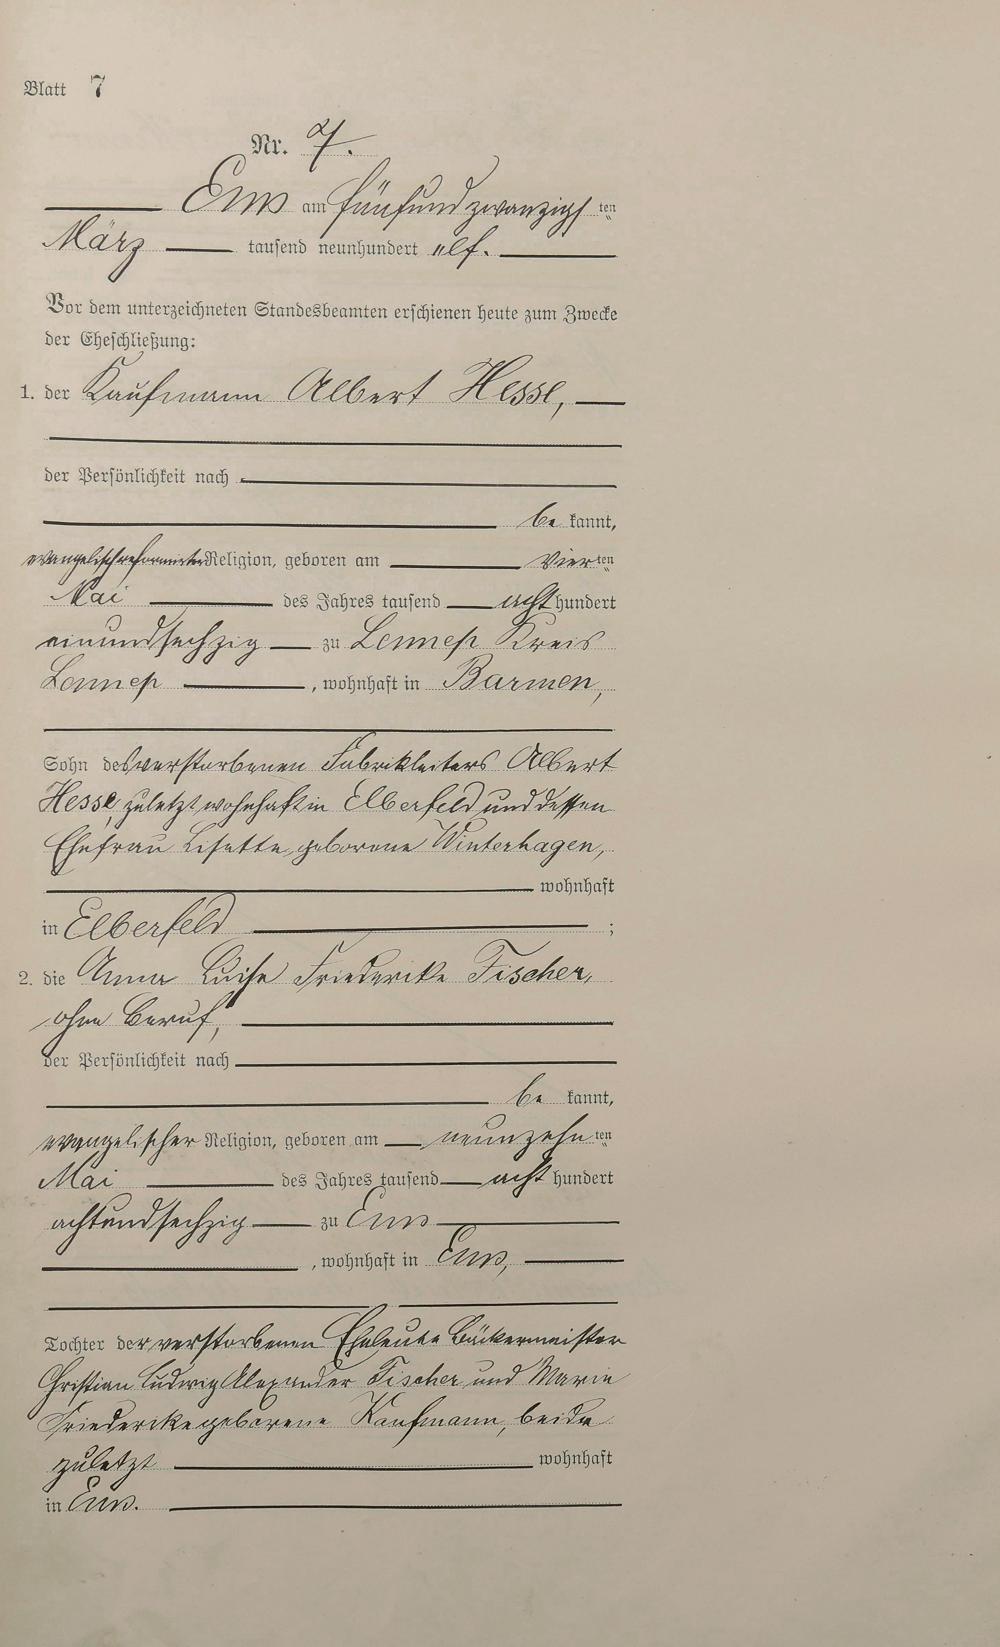 Blatt 7
Nr. 7.
Ems am fünfundzwanzigsten
März tausend neunhundert elf.
Vor dem unterzeichneten Standesbeamten erschienen heute zum Zwecke
der Eheschließung:
1. der Kaufmann Albert Hesse,
der Persönlichkeit nach
be kannt,
evangelischreformierter Religion, geboren am vierten
Mai des Jahres tausend acht hundert
einundsechzig zu Lennep Kreis
Lennep, wohnhaft in Barmen,
Sohn des verstorbenen Fabrikleiters Albert
Hesse, zuletzt wohnhaft in Elberfeld und dessen
Ehefrau Lisette geborene Winterhagen,
wohnhaft
in Elberfeld ;
2. die Anna Luise Friederike Fischer,
ohne Beruf,
der Persönlichkeit nach
be kannt,
evangelischer Religion, geboren am neunzehnten
Mai des Jahres tausend acht hundert
achtundsechzig zu Ems
, wohnhaft in Ems,
Tochter der verstorbenen Eheleute Bäckermeister
Christian Ludwig Alexander Fischer und Marie
Friederike geborene Kaufmann, beide
zuletzt wohnhaft
in Ems.